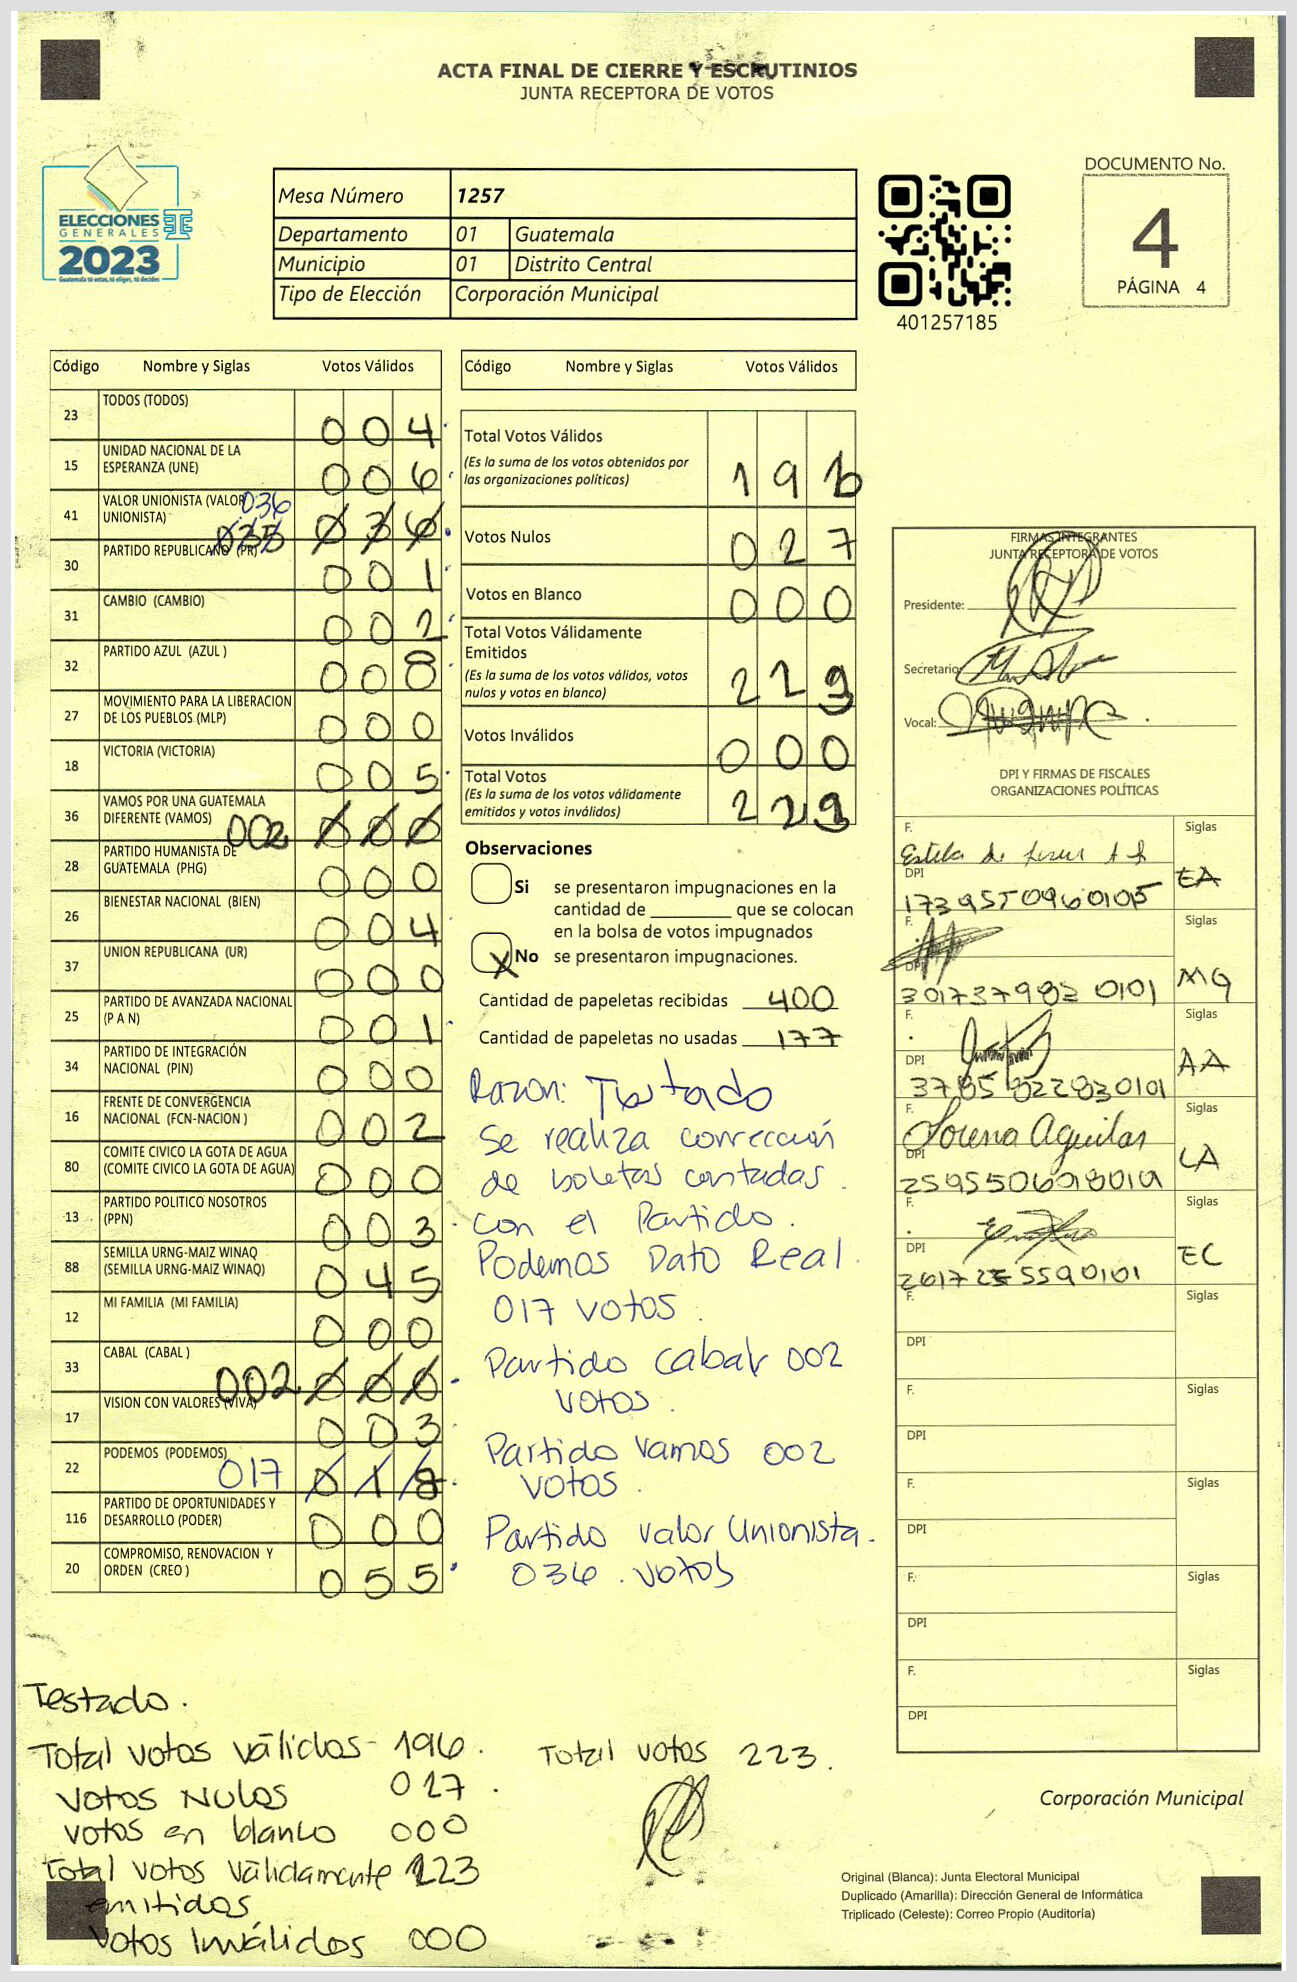 ACTA FINAL DE CIERRE Y ESCRUTINIOS
JUNTA RECEPTORA DE VOTOS
ELECCIONES
GENERALES
2023
Mesa Número 1257
Departamento 01 Guatemala
Municipio 01 Distrito Central
Tipo de Elección Corporación Municipal
401257185
DOCUMENTO No.
4
PÁGINA 4
Código Nombre y Siglas Votos Válidos
23 TODOS (TODOS) 004
15 UNIDAD NACIONAL DE LA ESPERANZA (UNE) 006
41 VALOR UNIONISTA (VALOR UNIONISTA) 036 035 036
30 PARTIDO REPUBLICANO (PR) 001
31 CAMBIO (CAMBIO) 002
32 PARTIDO AZUL (AZUL ) 008
27 MOVIMIENTO PARA LA LIBERACION DE LOS PUEBLOS (MLP) 000
18 VICTORIA (VICTORIA) 005
36 VAMOS POR UNA GUATEMALA DIFERENTE (VAMOS) 002 000
28 PARTIDO HUMANISTA DE GUATEMALA (PHG) 000
26 BIENESTAR NACIONAL (BIEN) 004
37 UNION REPUBLICANA (UR) 000
25 PARTIDO DE AVANZADA NACIONAL (P A N) 001
34 PARTIDO DE INTEGRACIÓN NACIONAL (PIN) 000
16 FRENTE DE CONVERGENCIA NACIONAL (FCN-NACION ) 002
80 COMITE CIVICO LA GOTA DE AGUA (COMITE CIVICO LA GOTA DE AGUA) 000
13 PARTIDO POLITICO NOSOTROS (PPN) 003
88 SEMILLA URNG-MAIZ WINAQ (SEMILLA URNG-MAIZ WINAQ) 045
12 MI FAMILIA (MI FAMILIA) 000
33 CABAL (CABAL ) 002 000
17 VISION CON VALORES (VIVA) 003
22 PODEMOS (PODEMOS) 017 018
116 PARTIDO DE OPORTUNIDADES Y DESARROLLO (PODER) 000
20 COMPROMISO, RENOVACION Y ORDEN (CREO ) 055
Código Nombre y Siglas Votos Válidos
Total Votos Válidos 196
(Es la suma de los votos obtenidos por
las organizaciones políticas)
Votos Nulos 027
Votos en Blanco 000
Total Votos Válidamente
Emitidos 223
(Es la suma de los votos válidos, votos
nulos y votos en blanco)
Votos Inválidos 000
Total Votos 223
(Es la suma de los votos válidamente
emitidos y votos inválidos)
Observaciones
Si se presentaron impugnaciones en la
cantidad de ________ que se colocan
en la bolsa de votos impugnados
X No se presentaron impugnaciones.
Cantidad de papeletas recibidas 400
Cantidad de papeletas no usadas 177
Razon: Testado
Se realiza corrección
de boletas contadas.
con el Partido.
Podemos Dato Real.
017 votos.
Partido Cabal 002
votos.
Partido Vamos 002
votos.
Partido Valor Unionista.
036. votos
FIRMAS INTEGRANTES
JUNTA RECEPTORA DE VOTOS
Presidente:
Secretario:
Vocal:
DPI Y FIRMAS DE FISCALES
ORGANIZACIONES POLÍTICAS
F. Siglas
Estela de
DPI EA
F. Siglas
DPI MG
301737982 0101
F. Siglas
DPI AA
F. Siglas
Lorena Aguilar
DPI LA
F. Siglas
DPI EC
F. Siglas
DPI
F. Siglas
DPI
F. Siglas
DPI
F. Siglas
DPI
F. Siglas
DPI
Testado.
Total votos válidos - 196.
votos Nulos 027.
votos en blanco 000
Total votos válidamente 223
emitidos
votos Inválidos 000
Total votos 223.
Corporación Municipal
Original (Blanca): Junta Electoral Municipal
Duplicado (Amarilla): Dirección General de Informática
Triplicado (Celeste): Correo Propio (Auditoría)